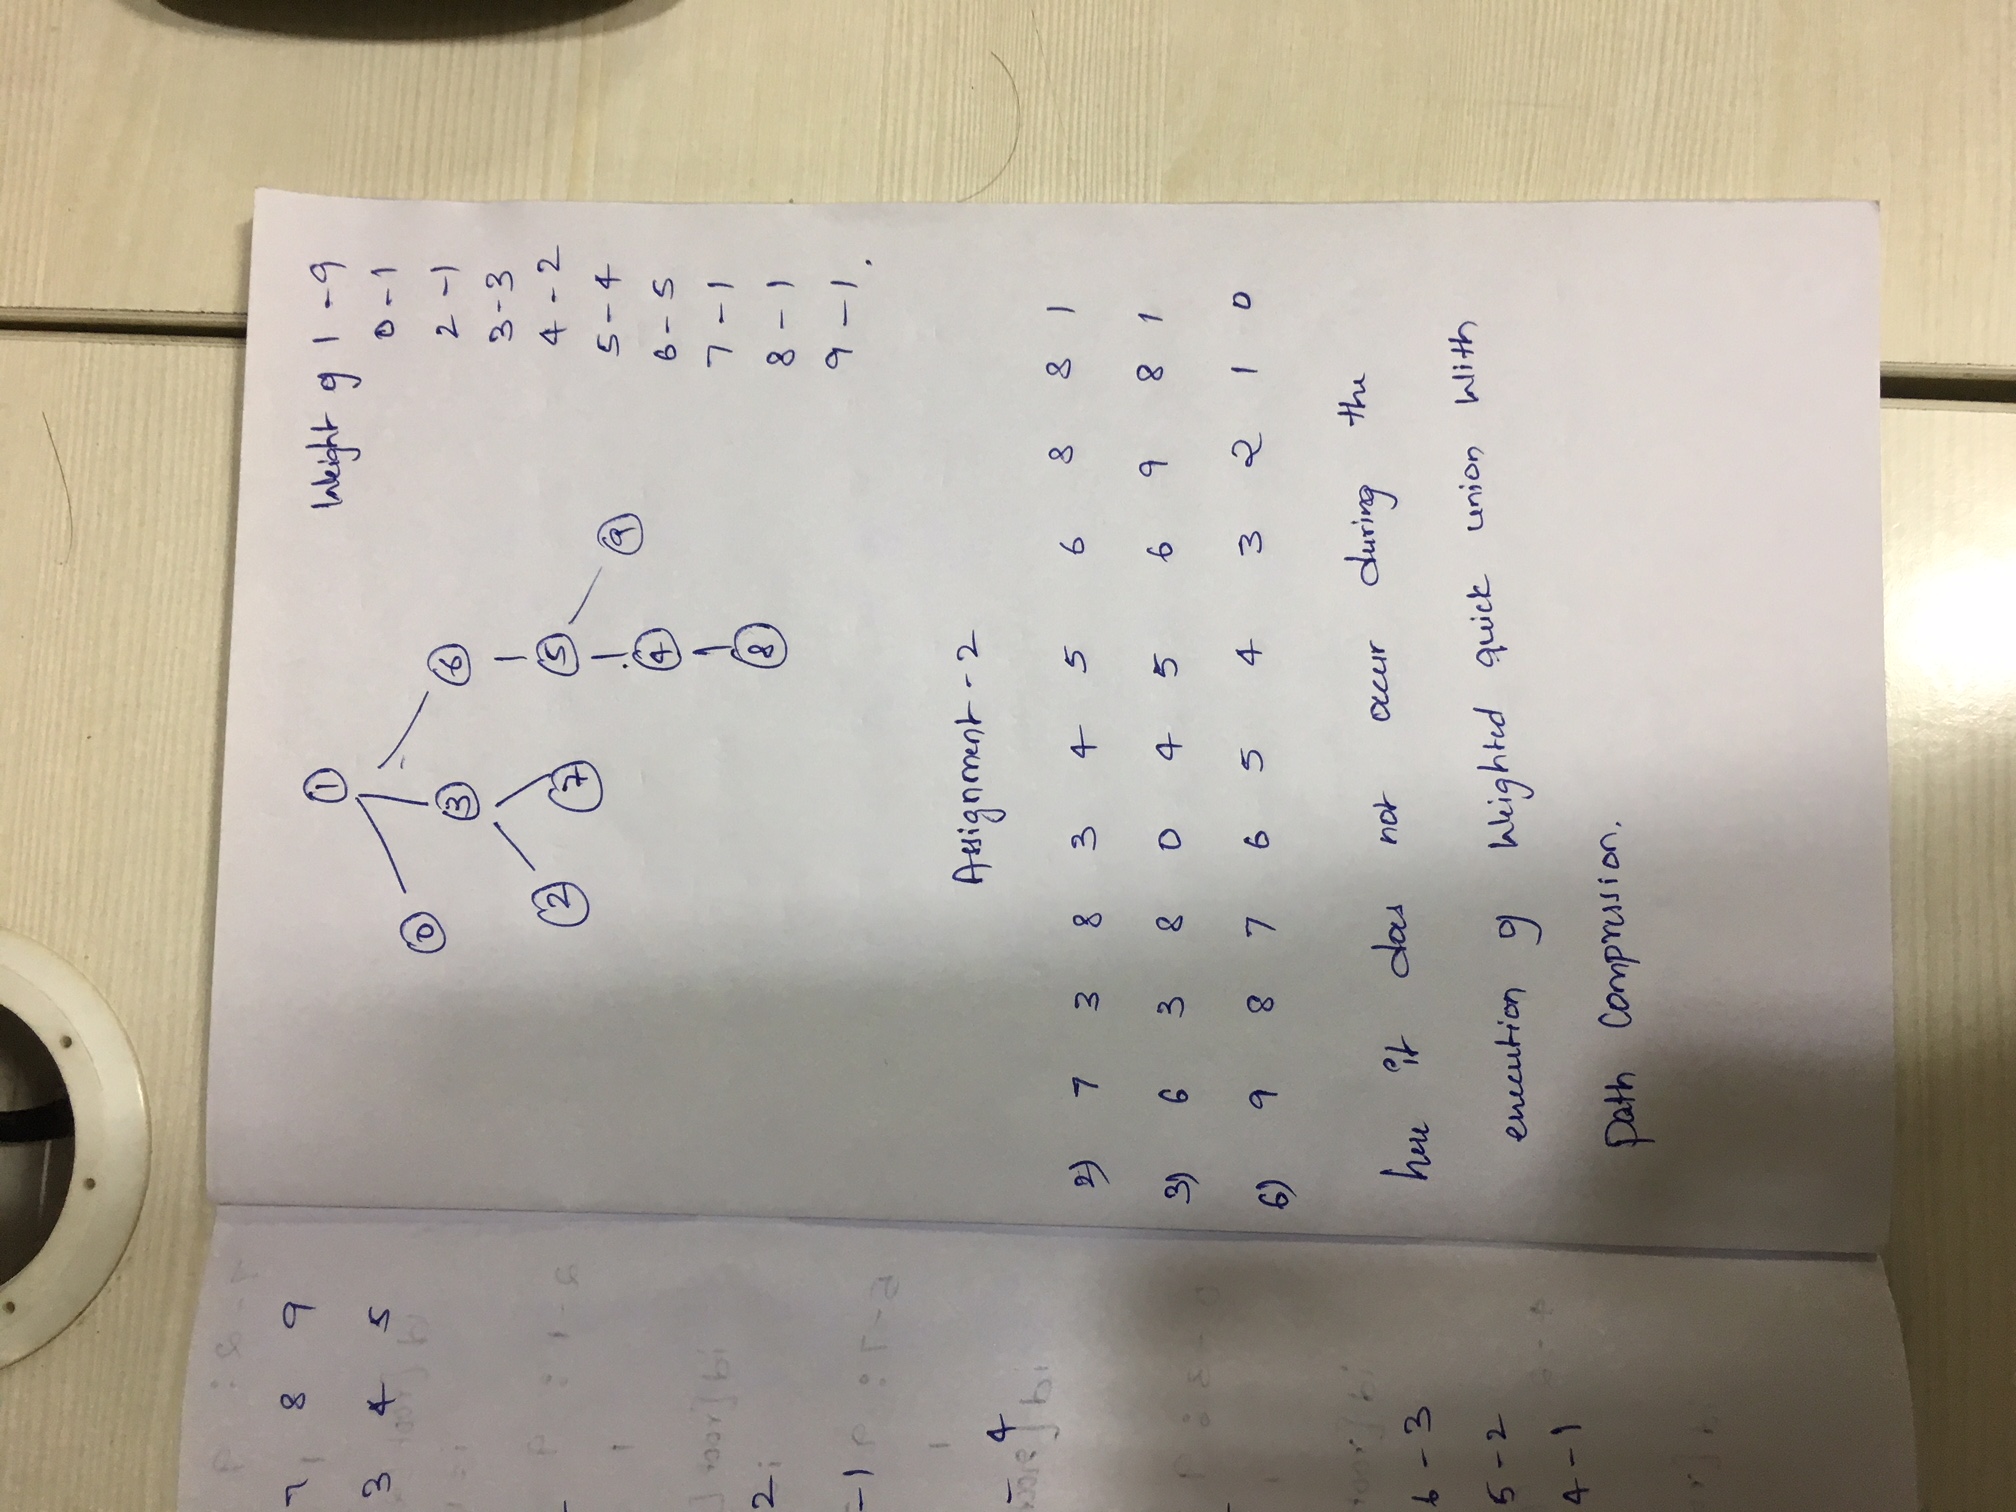 7 8 9
3 4 5
2
-1
- 4
6 - 3
5 - 2
4 - 1
1
0
3
6
2
7
5
9
4
8
Weight of 1 - 9
0 - 1
2 - 1
3 - 3
4 - 2
5 - 4
6 - 5
7 - 1
8 - 1
9 - 1.
Assignment - 2
2) 7 3 8 3 4 5 6 8 8 1
3) 6 3 8 0 4 5 6 9 8 1
6) 9 8 7 6 5 4 3 2 1 0
here it does not occur during the
execution of Weighted quick union With
Path Compression.